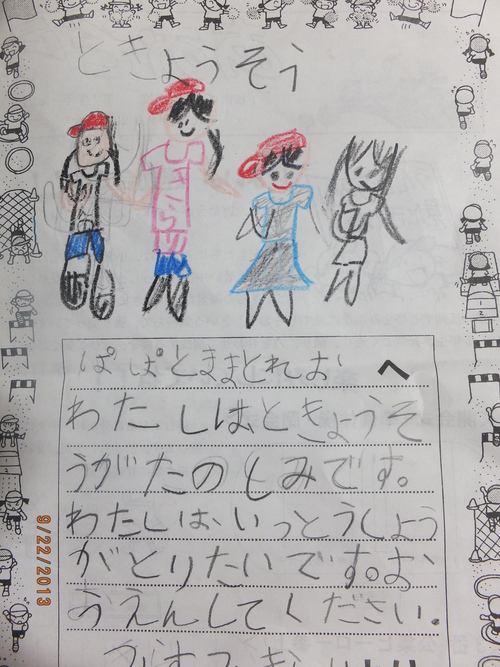 ときょうそう
ぱぱとままとれおへ
わたしは、ときょうそ
うがたのしみです。
わたしは、いっとうしょう
がとりたいです。お
うえんしてください.
9/22/2013